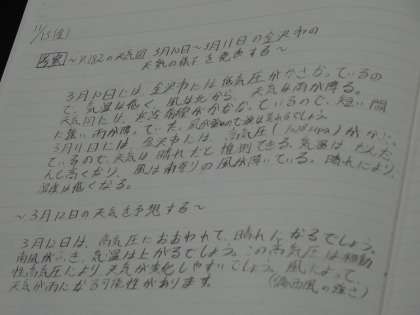 11/13(金)
考察 〜P.182の天気図 3月10日〜3月11日の金沢市の
天気の様子を発表する〜
3月10日には、金沢市には低気圧がかさなっているの
で、気温は低く、風は北から、天気は雨が降る。
天気図には、寒冷前線がかさなっているので、短い間
に強い雨が降っていた。
3月11日には、金沢市には、高気圧( )が
ているので、天気は晴れだと推測できる。気温はだんだ
んと高くなり、風は南寄りの風が吹いている。晴れにより、
湿度は低くなる。
〜3月12日の天気を予想する〜
3月12日は、高気圧におおわれて、晴れになるでしょう。
南風がふき、気温は上がるでしょう。この高気圧は移動
性高気圧により、天気が変化しやすいでしょう。風によって、
天気が雨になる可能性があります。 (偏西風の強さ)